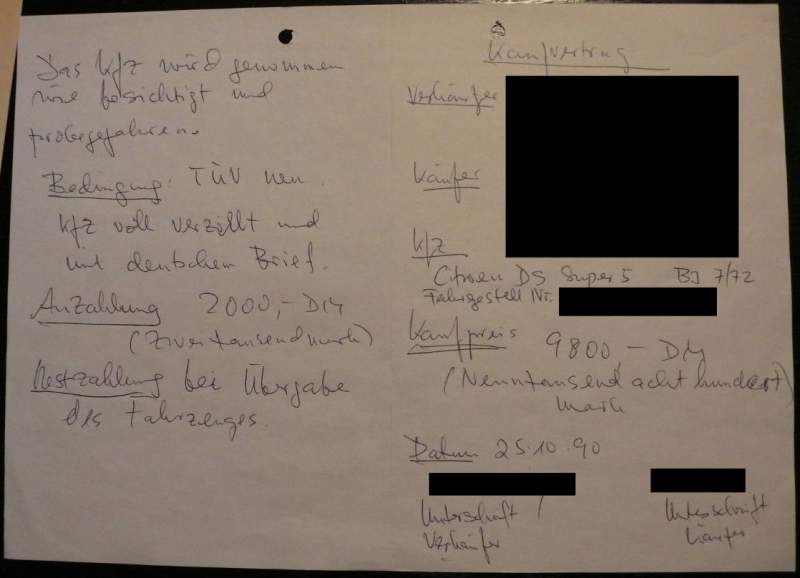 Kaufvertrag
Verkäufer
Käufer
Kfz
Citroen DS Super 5 BJ 7/72
Fahrgestell Nr.
Kaufpreis 9800,- DM
(Neuntausend acht hundert)
Mark
Datum 25.10.90
Unterschrift Unterschrift
Verkäufer Käufer
Das Kfz wird genommen
wie besichtigt und
probegefahren.
Bedingung: TÜV neu.
Kfz voll verzollt und
mit deutschem Brief.
Anzahlung 2000,- DM
(Zweitausendmark)
Restzahlung bei Übergabe
des Fahrzeuges.